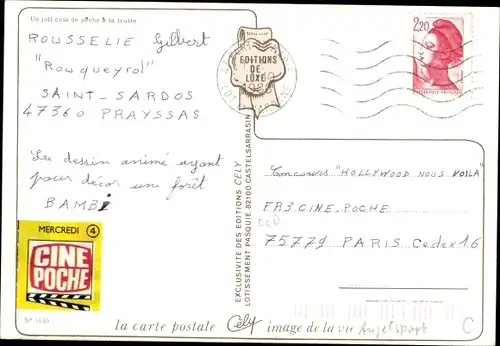 Un joli coin de pêche à la truite
ROUSSELIE Gilbert
"Rouqueyrol"
SAINT-SARDOS
47360 PRAYSSAS
Le dessin animé ayant
pour décor une forêt
BAMBI
MERCREDI 4
CINE
POCHE
EDITIONS
DE
LUXE
EXCLUSIVITE DES EDITIONS CELY
LOTISSEMENT PASQUIE 82100 CASTELSARRASIN
2,20
Concours "HOLLYWOOD NOUS VOILA"
FR3.CINE.POCHE
75779 PARIS Cedex 16
la carte postale Cély image de la vie
C